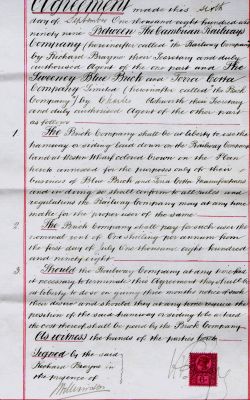 Agreement made this Sixth
day of September One thousand eight hundred and
ninety nine Between The Cambrian Railways
Company (hereinafter called "The Railway Company")
by Richard Brayne their Secretary and duly
authorised Agent of the one part and The
Sweeney Blue Brick and Terra Cotta
Company Limited (hereinafter called "the Brick
Company") by Charles Ashworth their Secretary
and duly authorised Agent of the other part
as follows:
1 The Brick Company shall be at liberty to use the
tramway or siding laid down on the Railway Company's
land at Weston Wharf colored brown on the Plan
hereto annexed for the purposes only of their
business of Blue Brick and Terra Cotta Manufacturers
and in doing so shall conform to all rules and
regulations the Railway Company may at any time
make for the proper user of the same.
2 The Brick Company shall pay for such user the
nominal rent of One shilling per annum from
the first day of July One thousand eight hundred
and ninety eight
3 Should the Railway Company at any time find
it necessary to terminate this Agreement they shall be
at liberty to do so on giving three months notice of such
their desire and should they at any time require the
position of the said tramway or siding to be altered
the cost thereof shall be paid by the Brick Company.
As witness the hands of the parties hereto
Signed by the said
Richard Brayne in
the presence of